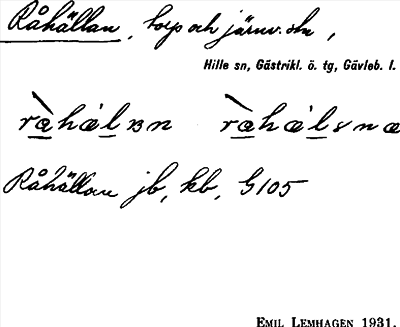 Råhällan, torp och järnv.stn,
Hille sn, Gästrikl. ö. tg, Gävleb. l.
Råhällan jb, kb, G105
EMIL LEMHAGEN 1931.